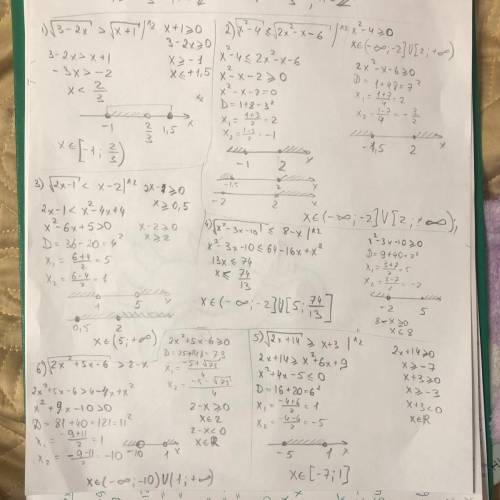 1) √3-2x > √x+1 |^2 x+1≥0
3-2x≥0
3-2x>x+1 x≥-1
-3x>-2 x≤+1,5
x<2/3
-1 2/3 1,5 x
x∈[-1; 2/3)
2) √x²-4 ≤ √2x²-x-6 |^2 x²-4≥0
x∈(-∞;-2]U[2;+∞)
x²-4≤2x²-x-6 2x²-x-6≥0
x²-x-2≥0 D=1+48=7²
x²-x-2=0 x₁=1+7/4=2
D=1+8=3² x₂=1-7/4=-3/2
x₁=1+3/2=2
x₂=1-3/2=-1
-1 2 x
-1,5 2 x
-1,5 2 x
-2 2 x
x∈(-∞;-2]U[2;+∞)
3) √2x-1 < x-2 |^2 2x-1≥0
2x-1<x²-4x+4 x≥0,5
x²-6x+5>0 x-2≥0
D=36-20=4² x≥2
x₁=6+4/2=5
x₂=6-4/2=1
1 5 x
0,5 2 x
x∈(5;+∞)
4) √x²-3x-10 ≤ 8-x |^2 x²-3x-10≥0
x²-3x-10≤64-16x+x² D=9+40=7²
13x≤74 x₁=3+7/2=5
x≤74/13 x₂=3-7/2=-2
-2 5 x
x∈(-∞;-2]U[5;74/13] 8-x≥0
x≤8
5) √2x+14 ≥ x+3 |^2 2x+14≥0
2x+14≥x²+6x+9 x≥-7
x²+4x-5≤0 x+3≥0
D=16+20=6² x≥-3
x₁=-4+6/2=1 x+3<0
x₂=-4-6/2=-5 x∈R
-5 1 x
x∈[-7;1]
6) √2x²+5x-6 > 2-x 2x²+5x-6≥0
D=25+48=73
2x²+5x-6>4-4x+x² x₁=-5+√73/4
x²+9x-10>0 x₂=-5-√73/4
D=81+40=121=11² 2-x≥0
x₁=-9+11/2=1 x≤2
x₂=-9-11/2=-10 2-x<0
x∈R
-10 1 x
x∈(-∞;-10)U(1;+∞)